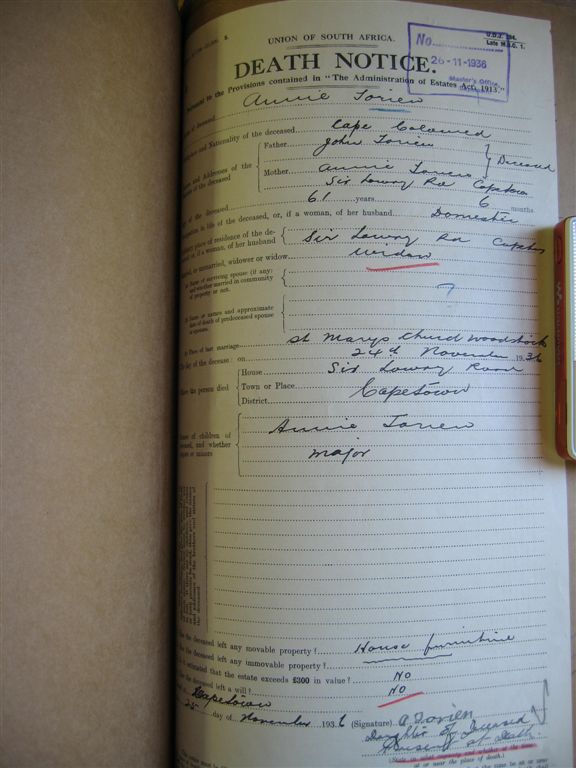 UNION OF SOUTH AFRICA.
No.
26-11-1936
Master's Office,
Late M.S.C. 1.
DEATH NOTICE.
to the Provisions contained in "The Administration of Estates Act, 1913."
of deceased Annie Torien
and Nationality of the deceased Cape Coloured
and Addresses of the
of the deceased
Father John Torien
Deceased
Mother Annie Torien
Sir Lowry Rd Capetown
of the deceased 61 years 6 months.
in life of the deceased, or, if a woman, of her husband Domestic
place of residence of the de-
or, if a woman, of her husband
Sir Lowry Rd Capetown
or unmarried, widower or widow widow
Name of surviving spouse (if any)
and whether married in community
of property or not.
?
Name or names and approximate
date of death of predeceased spouse
or spouses.
Place of last marriage St Marys Church Woodstock
The day of the decease: on 24th November 1936
Where the person died
House Sir Lowry Road
Town or Place
District
Capetown
of children of
deceased, and whether
or minors
Annie Torien
major
the deceased left any movable property? House furniture
the deceased left any immovable property?
it estimated that the estate exceeds £300 in value? NO
the deceased left a will? NO
Capetown
25 day of November 1936 (Signature) A Torien
Daughter of Deceased
at Death
(State in what capacity and whether at the time
at or near the place of death.)